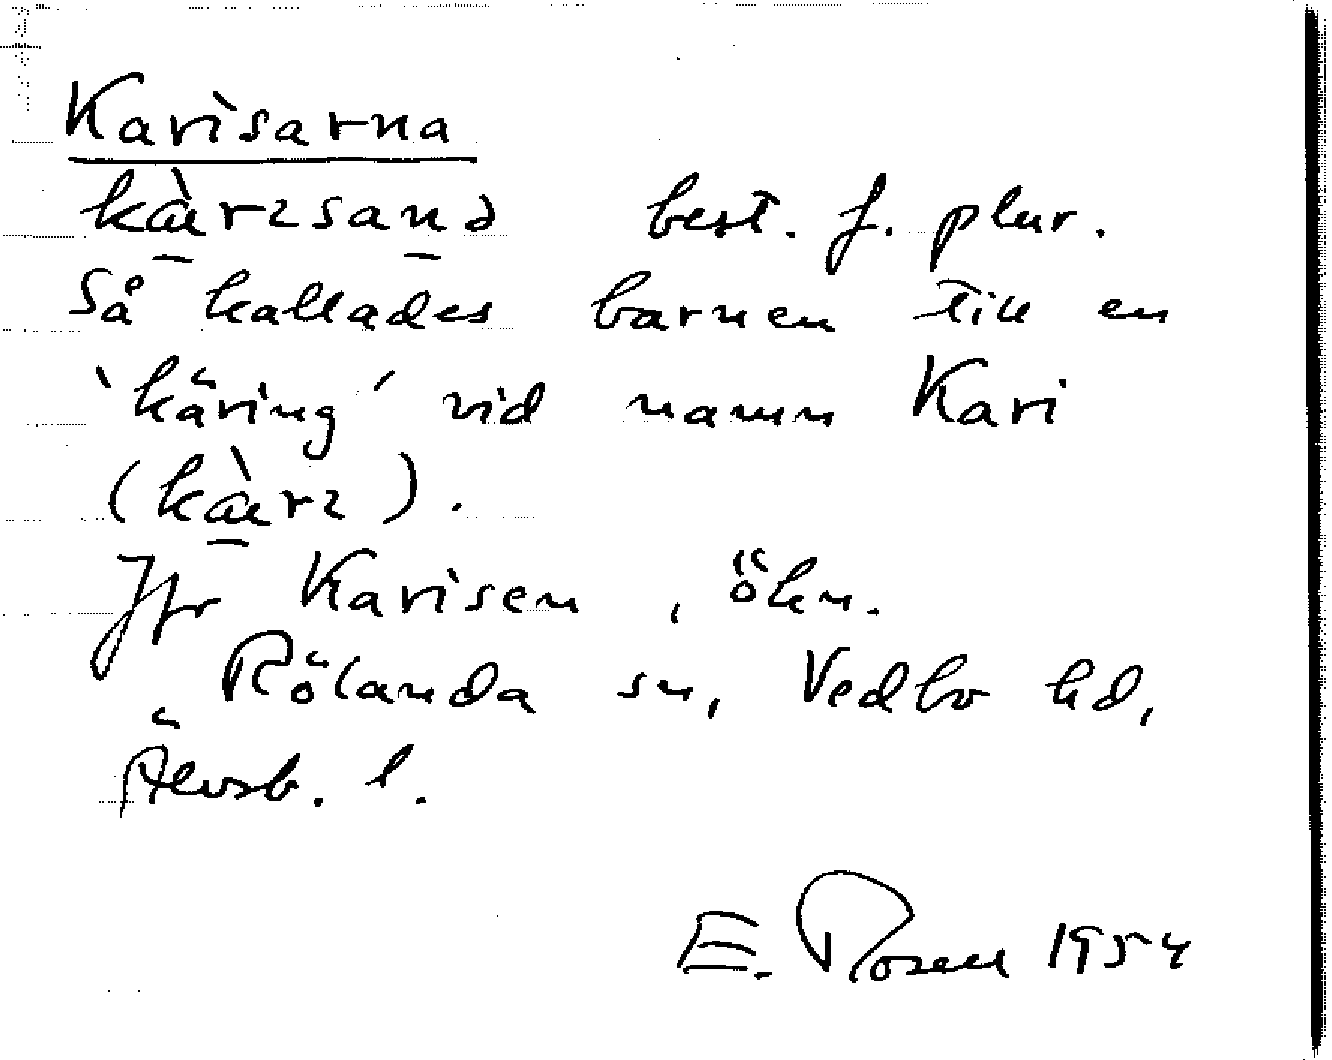 Karìsarna
kàrɪsanə best. f. plur.
Så kallades barnen till en
'käring' vid namn Kari
(kàrɪ).
Jfr Karisen, ökn.
Rölanda sn, Vedbo hd,
Älvsb. l.
E. Rosell 1954